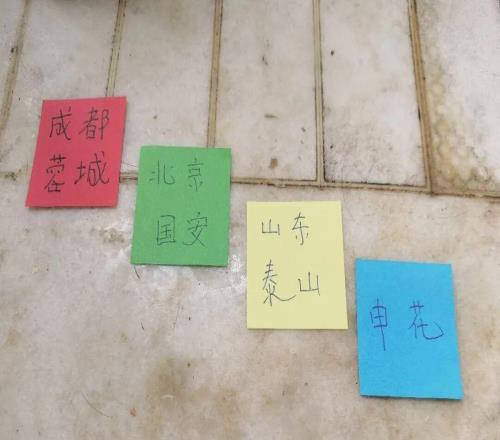 成都
蓉城
北京
国安
山东
泰山
申花